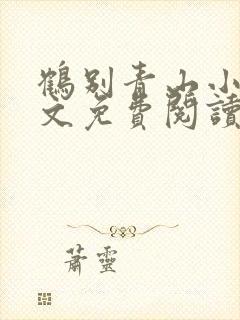 鶴別青山小
文免費閱讀
蕭靈